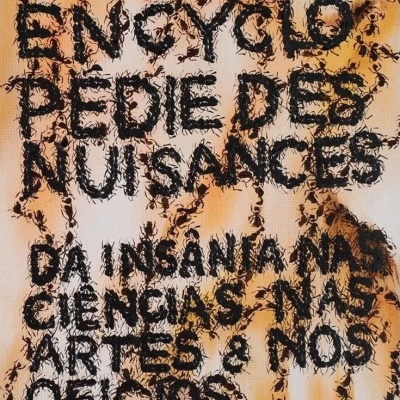 ENCYCLO
PÊDIE DES
NUISANCES
DA INSÂNIA NAS
CIÊNCIAS NAS
ARTES & NOS
OFICIOS